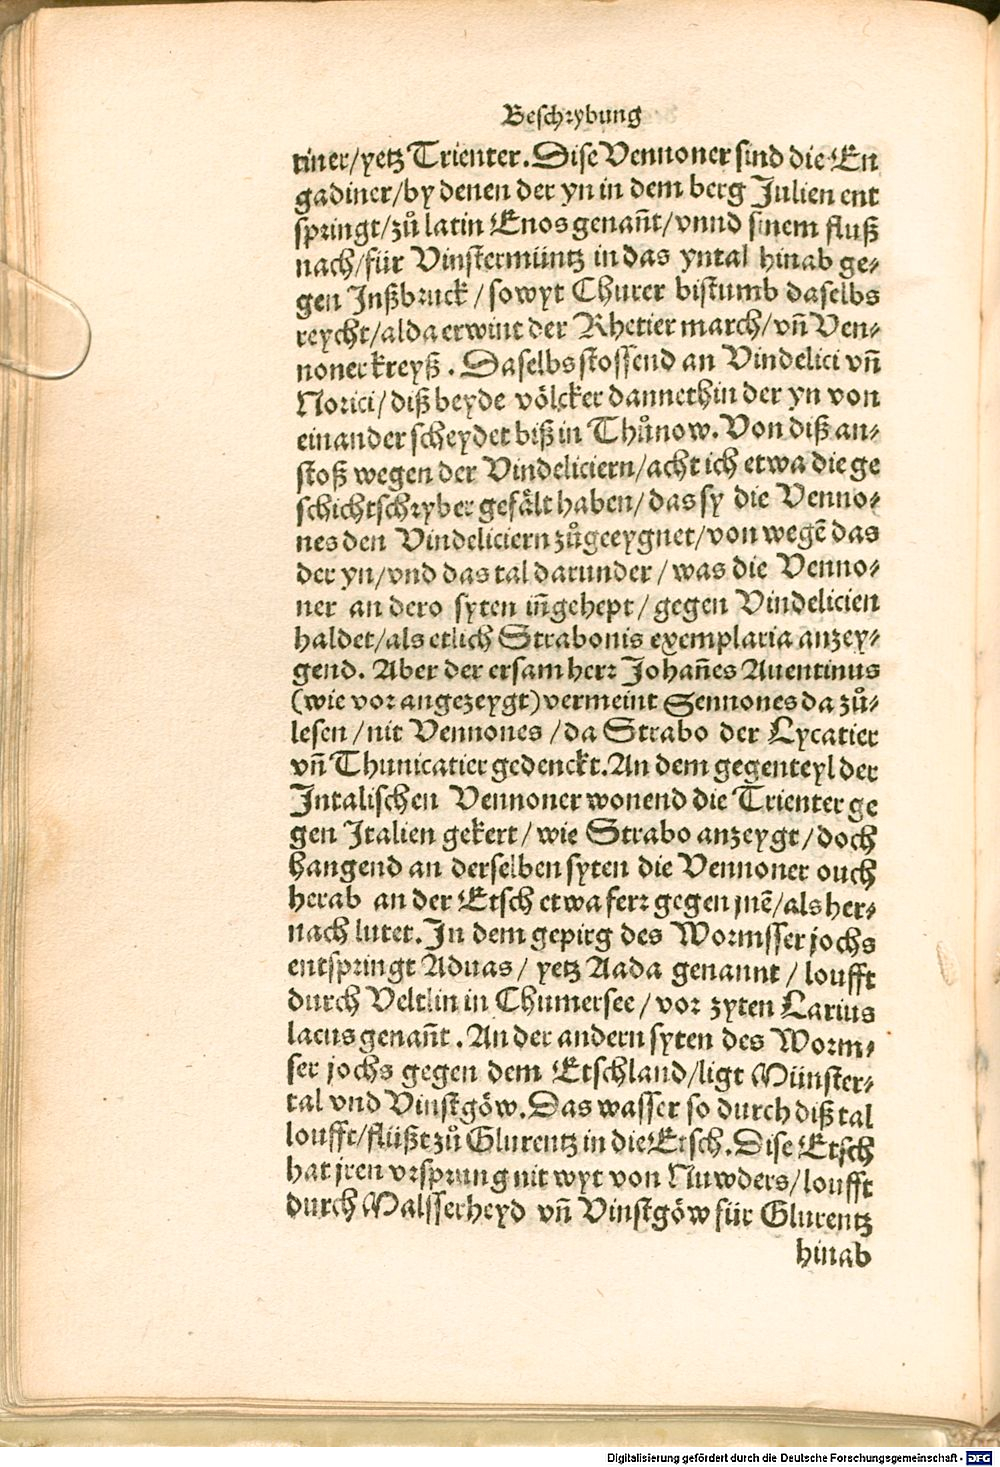 Beschrybung
tiner/yetz Trienter. Dise Vennoner sind die En
gadiner/by denen der yn in dem berg Julien ent
springt/zů latin Enos genañt/vnnd sinem fluß
nach/für Vinstermüntz in das yntal hinab ge⸗
gen Jnßbruck/so wyt Churer bistumb daselbs
reycht/alda erwint der Rhetier march/vñ Ven⸗
noner kreyß. Daselbs stossend an Vindelici vñ
Norici/diß beyde völcker dannethin der yn von
einander scheydet biß in Thůnow. Von diß an⸗
stoß wegen der Vindeliciern/acht ich etwa die ge
schichtschryber gefält haben/das sy die Venno⸗
nes den Vindeliciern zůgeeygnet/von wegẽ das
der yn/vnd das tal darunder/was die Venno⸗
ner an dero syten iñgehept/gegen Vindelicien
haldet/als etlich Strabonis exemplaria anzey⸗
gend. Aber der ersam herr Johañes Auentinus
(wie vor angezeygt) vermeint Sennones da zů⸗
lesen/nit Vennones/da Strabo der Lycatier
vñ Thunicatier gedenckt. An dem gegenteyl der
Jntalischen Vennoner wonend die Trienter ge
gen Jtalien gekert/wie Strabo anzeygt/doch
hangend an derselben syten die Vennoner ouch
herab an der Etsch etwa ferr gegen jnẽ/als her⸗
nach lutet. Jn dem gepirg des Wormsser jochs
entspringt Aduas/yetz Aada genannt/loufft
durch Veltlin in Chumersee/vor zyten Larius
lacus genañt. An der andern syten des Worm⸗
ser jochs gegen dem Etschland/ligt Münster⸗
tal vnd Vinstgöw. Das wasser so durch diß tal
loufft/flüßt zů Glurentz in die Etsch. Dise Etsch
hat jren vrsprung nit wyt von Nuwders/loufft
durch Malsserheyd vñ Vinstgöw für Glurentz
hinab
Digitalisierung gefördert durch die Deutsche Forschungsgemeinschaft - DFG